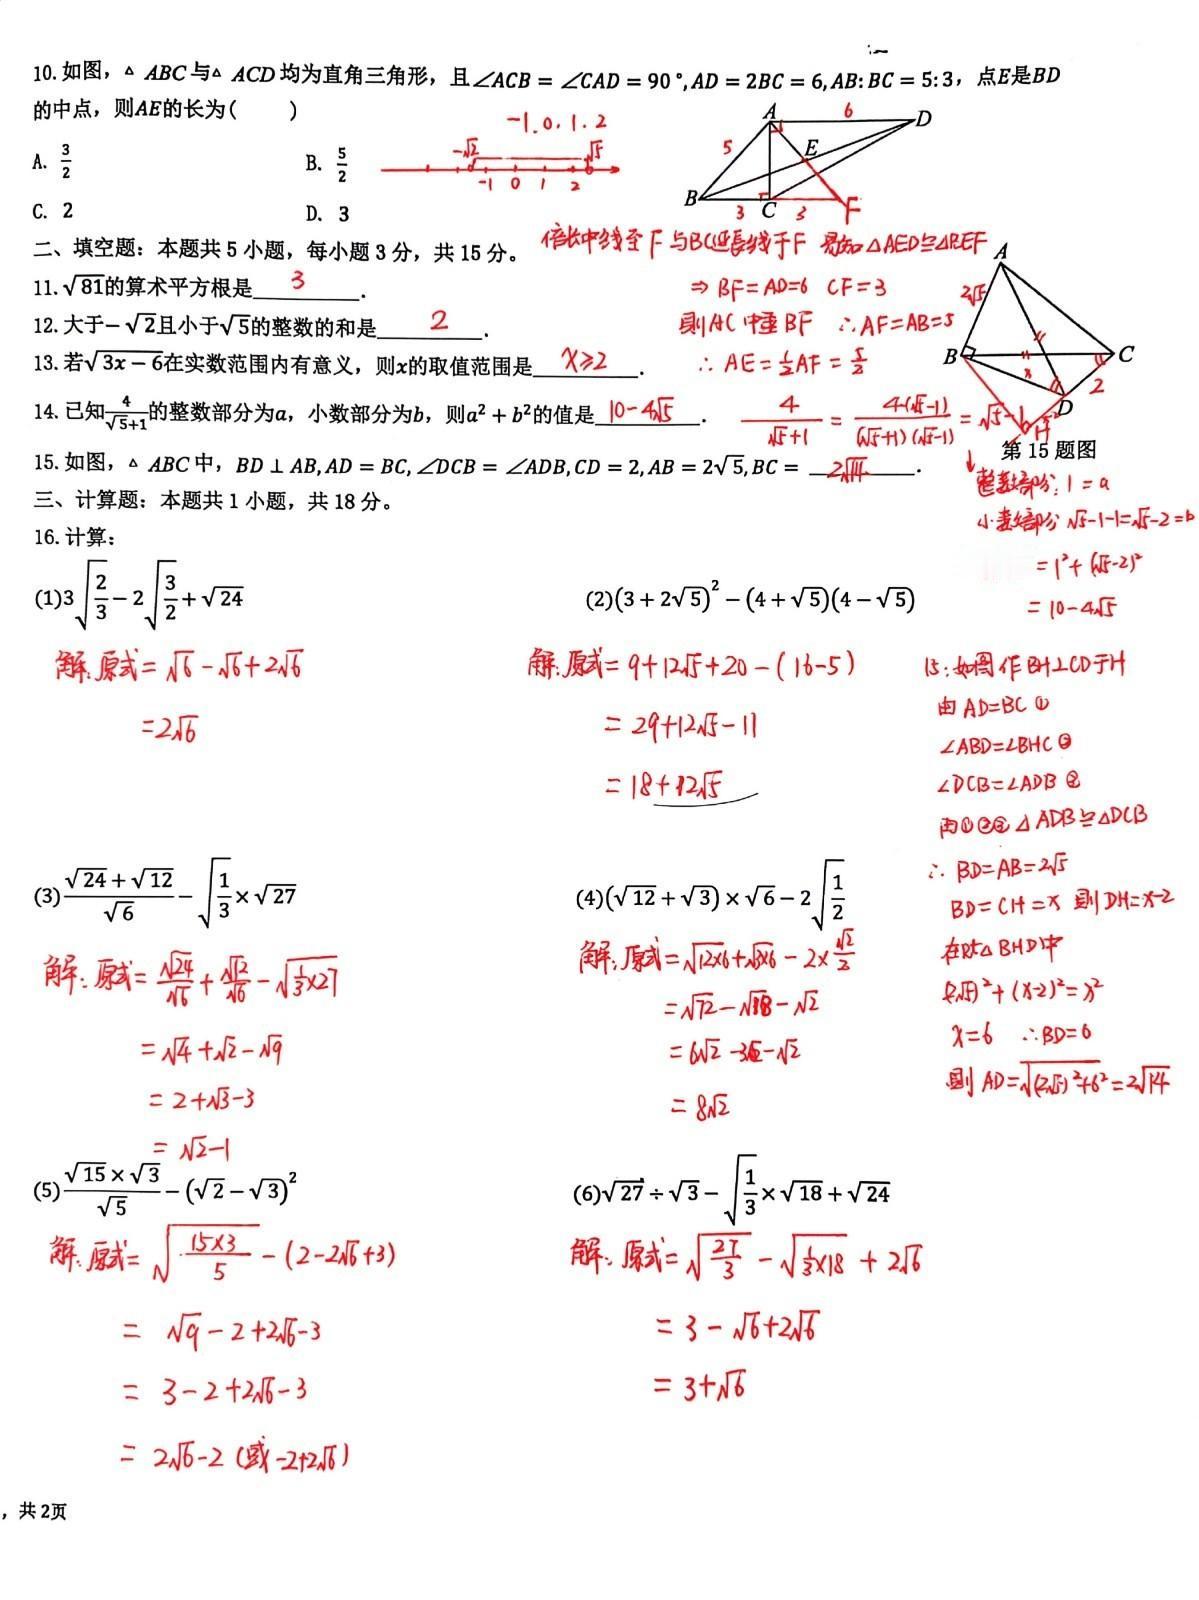 10.如图，▵ ABC与▵ ACD均为直角三角形，且∠ACB = ∠CAD = 90 °, AD = 2BC = 6, AB: BC = 5: 3，点E是BD
的中点，则AE的长为( )
A. 3/2
B. 5/2
C. 2
D. 3
-1.0.1.2
-√2 √5
-1 0 1 2
A 6 D
5 E
B 3 C 3 F
倍长中线至F 与BC延长线于F 易知△AED≌△BEF
⇒ BF=AD=6 CF=3
则AC中垂BF ∴AF=AB=5
∴ AE=1/2AF=5/2
二、填空题：本题共 5 小题，每小题 3 分，共 15 分。
11.√81的算术平方根是 3 .
12.大于−√2且小于√5的整数的和是 2 .
13.若√3x − 6在实数范围内有意义，则x的取值范围是 x≥2 .
14.已知4/(√5+1)的整数部分为a，小数部分为b，则a² + b²的值是 10-4√5 .
4/(√5+1) = 4(√5-1)/((√5+1)(√5-1)) = √5-1
15.如图，▵ ABC中，BD ⊥ AB, AD = BC, ∠DCB = ∠ADB, CD = 2, AB = 2√5, BC = 2√14 .
A
2√5
B x C
2
D
H
第 15 题图
↓ 整数部分: 1 = a
小数部分 √5-1-1=√5-2=b
= 1²+(√5-2)²
= 10-4√5
三、计算题：本题共 1 小题，共 18 分。
16.计算：
(1)3√(2/3) − 2√(3/2) + √24
解:原式= √6 - √6+2√6
=2√6
(2)(3 + 2√5)² − (4 + √5)(4 − √5)
解:原式= 9+12√5+20-(16-5)
= 29+12√5-11
= 18+12√5
15:如图作BH⊥CD于H
由 AD=BC ①
∠ABD=∠BHC ②
∠DCB=∠ADB ②
由①②② △ADB≌△DCB
∴ BD=AB=2√5
BD=CH=x 则DH=x-2
在Rt△BHD中
(2√5)²+(x-2)²=x²
x=6 ∴BD=6
则 AD=√((2√5)²+6²)=2√14
(3)(√24 + √12)/√6 − √(1/3) × √27
解:原式= √24/√6 + √12/√6 - √(1/3×27)
= √4+√2-√9
= 2+√3-3
= √2-1
(4)(√12 + √3) × √6 − 2√(1/2)
解:原式=√12×6+√3×6 - 2×√2/2
=√72-√18-√2
= 6√2 -3√2-√2
= 8√2
(5)(√15 × √3)/√5 − (√2 − √3)²
解:原式= √(15×3/5) - (2-2√6+3)
= √9-2+2√6-3
= 3-2+2√6-3
= 2√6-2 (或 -2+2√6)
(6)√27 ÷ √3 − √(1/3) × √18 + √24
解:原式=√(27/3) - √(1/3×18) + 2√6
= 3-√6+2√6
= 3+√6
，共 2页